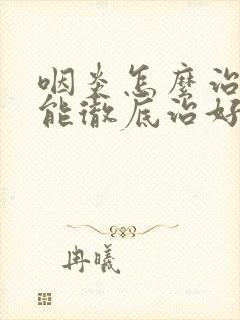 咽炎怎麼治
能徹底治好
冉曦